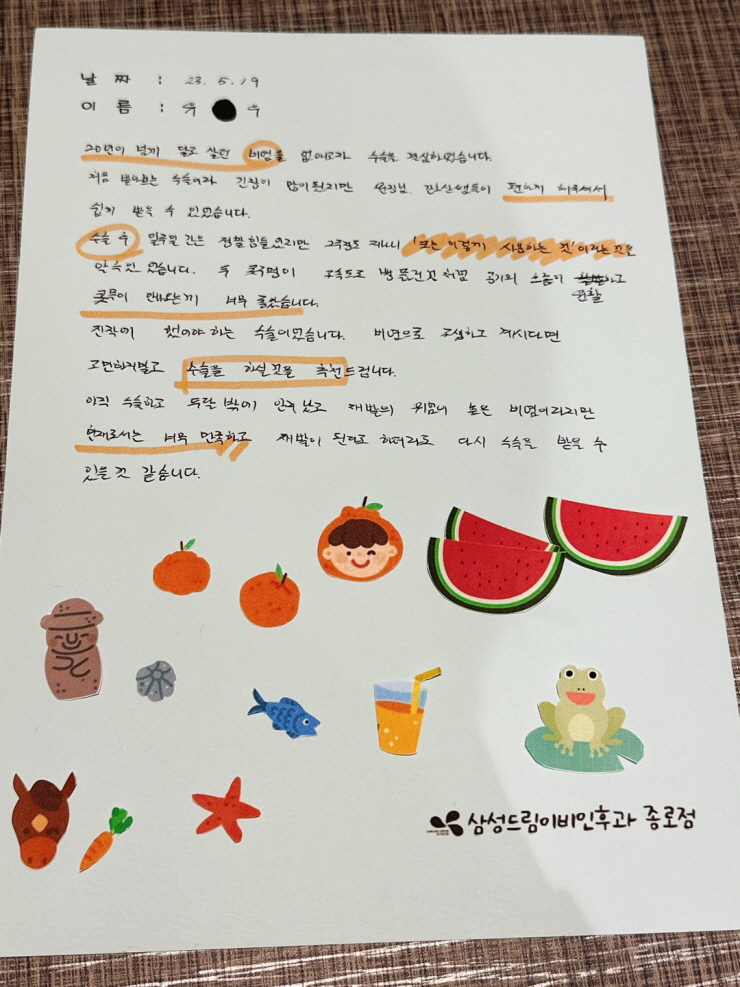 날 짜 : 23. 5. 19
이 름 : 우 수
20년이 넘게 달고 살던 비염을 없애고자 수술을 결심하였습니다.
처음 받아보는 수술이라 긴장이 많이 됐지만 원장님, 간호사쌤들이 편하게 해주셔서
쉽게 받을 수 있었습니다.
수술 후 일주일 간은 정말 힘들었지만 2주정도 지나니 '코는 이렇게 사용하는 것' 이라는 것을
알 수 있었습니다. 두 콧구멍이 고속도로 뻥 뚫린것처럼 공기의 흐름이 원활하고
콧물이 안나오는게 너무 좋았습니다.
진작에 했어야 하는 수술이었습니다. 비염으로 고생하고 계시다면
고민하지말고 수술을 하실 것을 추천드립니다.
아직 수술하고 두달 밖에 안지났고 재발의 위험이 높은 비염이라지만
현재로서는 너무 만족하고 재발이 된다고 하더라도 다시 수술을 받을 수
있을 것 같습니다.
삼성드림이비인후과 종로점